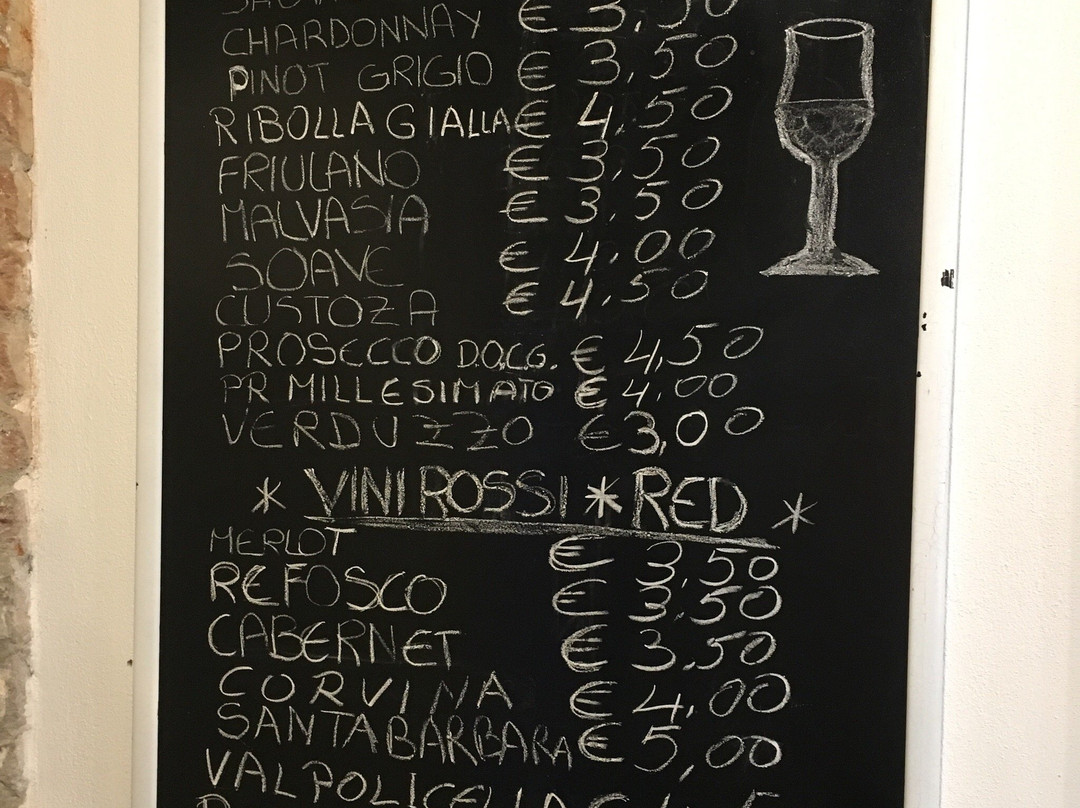 CHARDONNAY € 3,50
PINOT GRIGIO € 3,50
RIBOLLA GIALLA € 4,50
FRIULANO € 3,50
MALVASIA € 3,50
SOAVE € 4,00
CUSTOZA € 4,50
PROSECCO D.O.C.G. € 4,50
PR MILLESIMATO € 4,00
VERDUZZO € 3,00
* VINI ROSSI * RED *
MERLOT € 3,50
REFOSCO € 3,50
CABERNET € 3,50
CORVINA € 4,00
SANTABARBARA € 5,00
VALPOLICELLA €